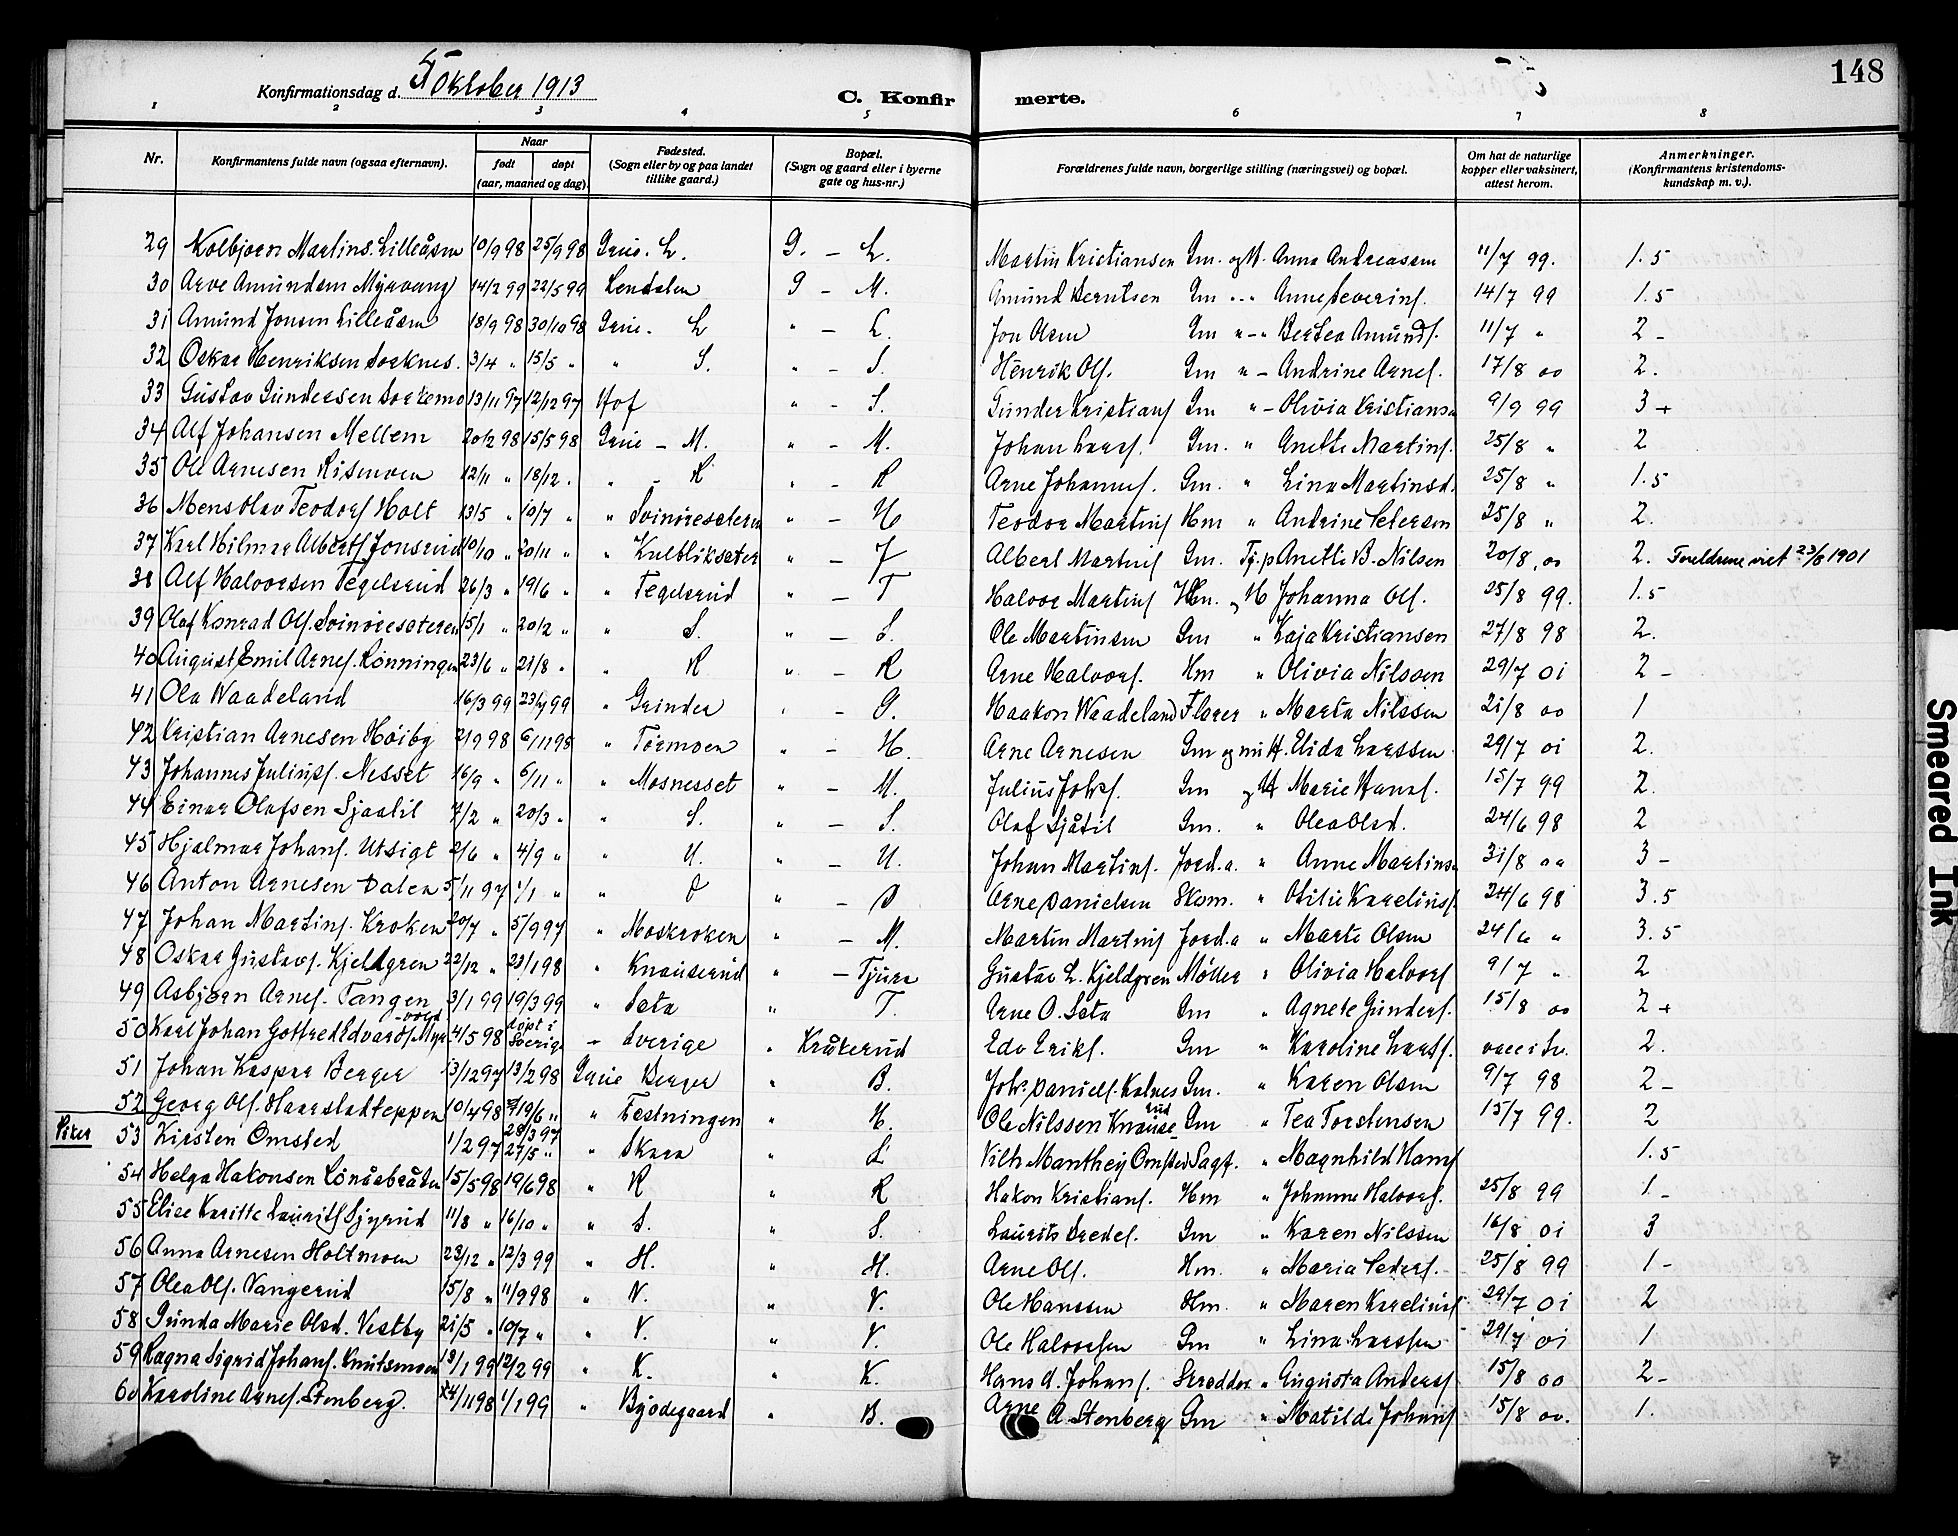 148
Konfirmationsdag d. 5 Oktober 1913
C. Konfirmerte.
1 2 3 4 5 6 7 8
Nr. Konfirmantens fulde navn (ogsaa efternavn). Naar født døpt (aar, maaned og dag) Fødested. (Sogn eller by og paa landet tillike gaard.) Bopæl. (Sogn og gaard eller i byerne gate og hus-nr.) Forældrenes fulde navn, borgerlige stilling (næringsvei) og bopæl. Om hat de naturlige kopper eller vaksinert, attest herom. Anmerkninger. (Konfirmantens kristendoms-kundskap m. v.).
29 Kolbjørn Martins. Lilleåsen 10/9 98 25/9 98 Grue. L. G. – L. Martin Kristiansen Gm. og H. Anna Andreassen 11/7 99. 1.5
30 Arve Amundsen Myrvang 14/2 99 22/5 99 Lendalen G – M. Amund Berntsen Gm „ – „ Anne Severins. 14/7 99 1.5
31 Amund Jonsen Lilleåsen 18/9 98 30/10 98 Grue. L „ – L. Jon Olsen Gm „ – „ Bertea Amunds. 11/7 „ 2 –
32 Oskar Henriksen Sorknes. 3/4 „ 15/5 „ „ S. „ – S. Henrik Ols. Gm „ – Andrine Arnes. 17/8 00 2.
33 Gustav Gundersen Sorkemo 13/11 97 12/12 97 Hof „ – S. Gunder Kristians Gm „ – Olivia Kristians 9/9 99 3 +
34 Alf Johansen Mellem 20/2 98 15/5 98 Grue – M. „ – M. Johan Lars. Gm. „ Anette Martins. 25/8 „ 2
35 Ole Arnesen Rismoen 12/11 „ 18/12 „ „ – R „ – R Arne Johannes. Gm. „ Lina Martinsd. 25/8 „ 1.5
36 Mens Olav Teodors Holt 13/5 „ 10/7 „ „ Svinøreseteren „ – H Teodor Martins Hm „ Andrine Petersen 25/8 „ 2.
37 Karl Hilmar Alberts Jonsrud 10/10 „ 20/11 „ „ Kulblikseter „ – J Albert Martins Gm. Tj.p Anette B. Nilsen 20/8 00 2. Foreldrene viet 23/8 1901
38 Alf Halvorsen Tegelsrud 26/3 „ 19/6 „ „ Tegelsrud „ – T Halvor Martins Hm. og H Johanna Ols. 25/8 99. 1.5
39 Olaf Konrad Ols. Svinøreseteren 15/1 „ 20/2 „ „ S. „ – S. Ole Martinsen Gm „ Kaja Kristiansen 27/8 98 2.
40 August Emil Arnes. Rønningen 23/6 „ 21/8 „ „ R „ – R Arne Halvors. Hm „ Olivia Nilssen 29/7 01 2 –
41 Ola Waadeland 16/3 99 23/4 99 „ Grinder „ – G. Haakon Waadeland Lærer „ Marta Nilssen 21/8 00 1
42 Kristian Arnesen Høiby 2/9 98 6/11 98 „ Tørmoen „ – H. Arne Arnesen Gm og H. Elida Larssen 29/7 01 2.
43 Johannes Julius. Nesset 16/9 „ 6/11 „ „ Mosnesset „ – M. Julius Johs. Gm og H Marie Hans. 15/7 99 2.
44 Einar Olafsen Sjaatil 7/2 „ 20/3 „ „ S. „ – S. Olaf Sjåtil Gm. „ Olea Olsd. 24/6 98 2
45 Hjalmar Johans. Utsigt 2/6 „ 4/9 „ „ U. „ – U. Johan Martins. Jord.a. „ Anne Martins 31/8 00 3 –
46 Anton Arnesen Dalen 5/11 97 1/1 „ „ D „ – D Arne Danielsen Skom. „ Otilie Karelius. 24/6 98 3.5
47 Johan Martins. Kroken 20/7 „ 5/9 97 „ Moskroken „ – M. Martin Martins Jord.a „ Marte Olsen 24/6 „ 3.5
48 Oskar Gustavs. Kjeldgren 22/12 „ 23/1 98 „ Knauserud „ – Tjura Gustav L. Kjeldgren Møller „ Olivia Halvors 9/7 „ 2
49 Asbjørn Arnes. Tangen 3/1 99 19/3 99 „ Sata „ T. Arne O. Sata Gm „ Agnete Gunders. 15/8 00 2 +
50 Karl Johan Gotfred Edvards Myrvold 4/5 98 døpt i Sverige – Sverige „ Kråkerud Edv Eriks. Gm „ Karoline Larss. vacc i Sv. 2.
51 Johan Kaspar Berger 13/12 97 13/2 98 Grue Berger „ B. Johs. Daniels. Kalnes Gm. „ Karen Olsen 9/7 98 2 –
52 Georg Ols. Haarstadteppen 10/4 98 19/6 „ „ Festningen „ H. Ole Nilssen Knauserud Gm „ Tea Torstensen 15/7 99. 2
Piker
53 Kirsten Omsted 1/2 97 28/3 97 27/5 „ „ Skara „ L Vilh Manthey Omsted Sagf. „ Magnhild Hans 1.5
54 Helga Hakonsen Lønåsbråten 15/5 98 19/6 98 „ R „ R Hakon Kristians. Hm „ Johanne Halvors. 25/8 99 1 –
55 Elise Karitte Laurits Sjyrud 11/8 „ 16/10 „ „ S. „ S. Laurits Fredes. Gm „ Karen Nilssen 16/8 01 3
56 Anna Arnesen Holtmoen 23/12 „ 12/3 99 „ H. „ H. Arne Ols. Hm. „ Maria Peders. 25/8 99 1 –
57 Olea Ols. Vangerud 15/8 „ 11/9 98 „ V. „ V. Ole Hanssen Hm. „ Maren Karelius 29/7 01 2
58 Gunda Marie Olsd. Vestby 21/5 „ 10/7 „ „ V. „ V. Ole Halvorsen Gm „ Lina Larssen 29/7 01 1
59 Ragna Sigrid Johans. Knutsmoen 13/1 99 12/2 99 „ K. „ K. Hans A. Johans. Skredder „ Augusta Anders 15/8 00 2 –
60 Karoline Arnes. Stenberg. 24/11 98 1/1 99 „ Byødegaard „ B. Arne A. Stenberg Gm „ Matilde Johans 15/8 00. 1.
Smeared Ink